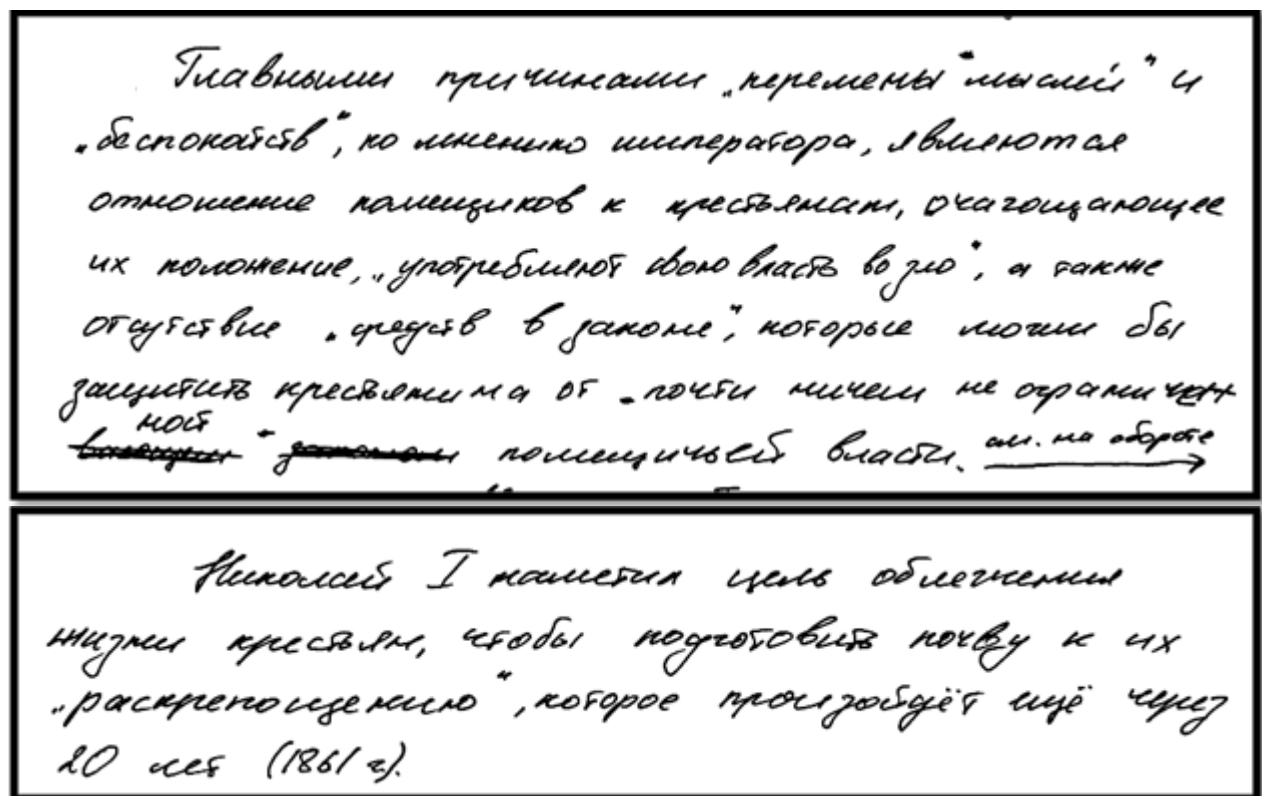 Главными причинами „перемены "мыслей" и
„беспокойств", по мнению императора, являются
отношение помещиков к крестьянам, отягощающее
их положение, „употребляют свою власть во зло", а также
отсутствие „средств в законе", которые могли бы
защитить крестьянина от „почти ничем не ограничен
ной" помещичьей власти. см. на обороте
Николай I наметил цель облегчения
жизни крестьян, чтобы подготовить почву к их
„раскрепощению", которое произойдёт ещё через
20 лет (1861 г).